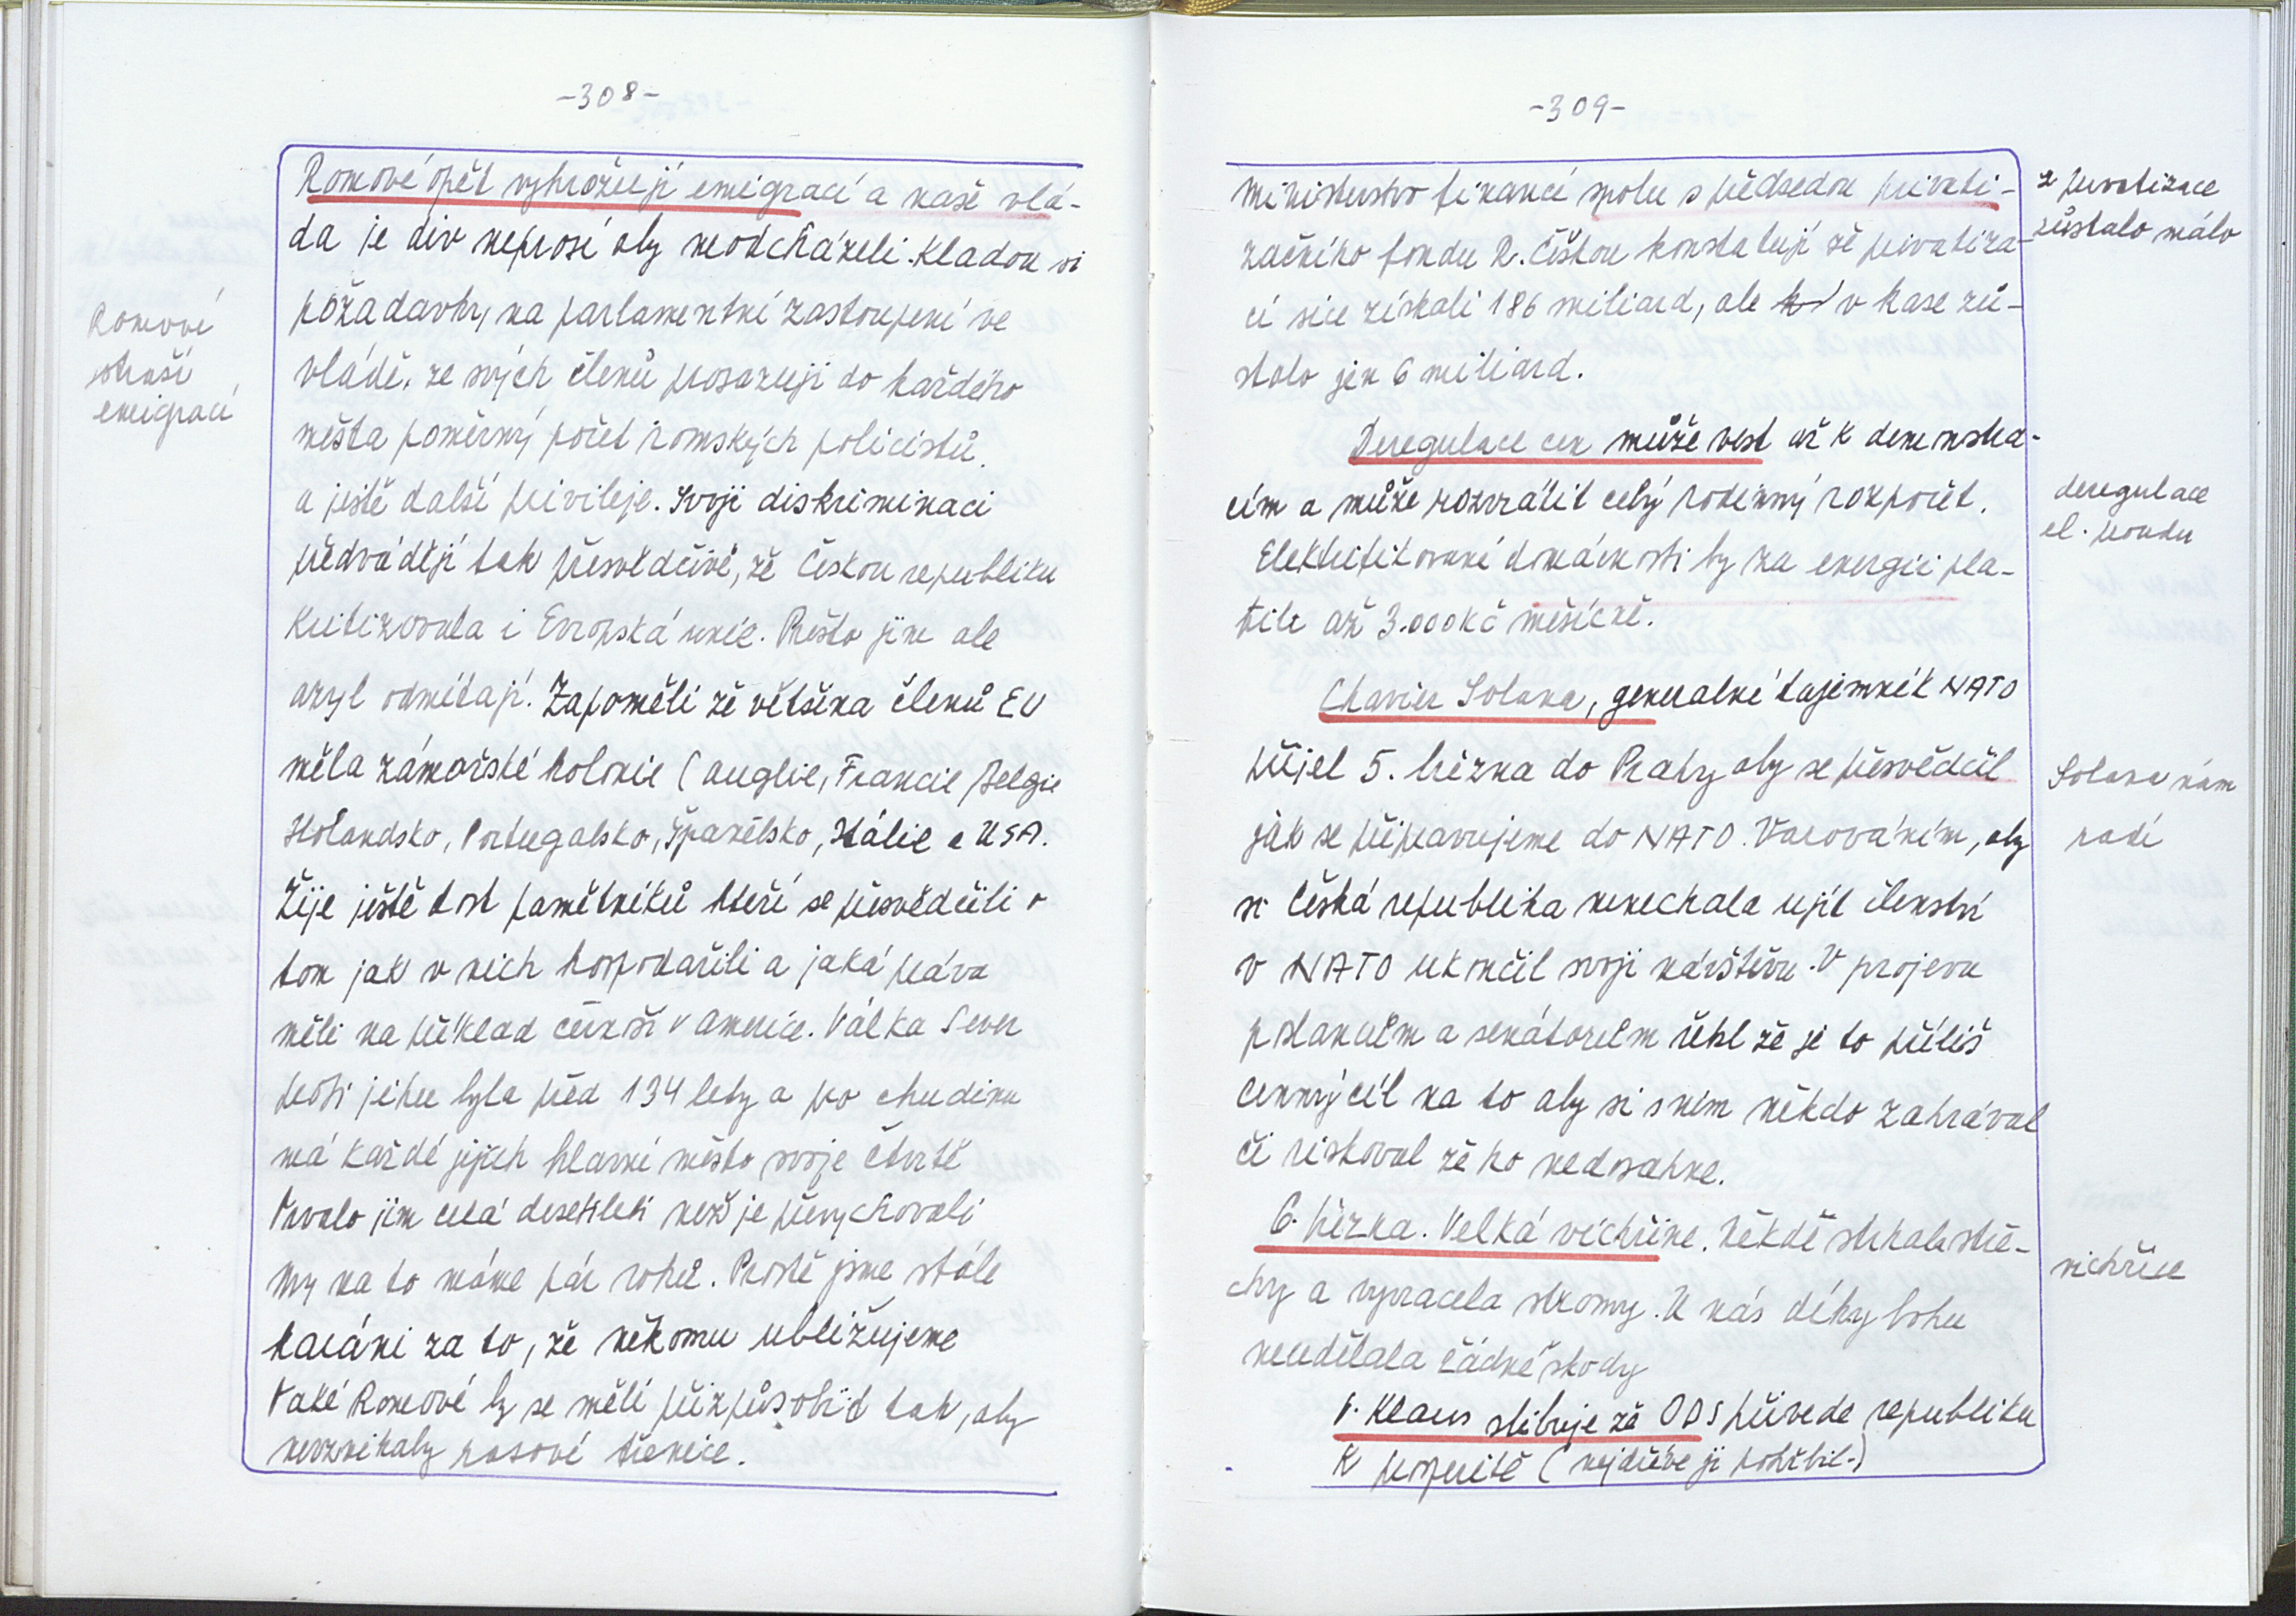 -308-
Romové opět vyhrožují emigrací a naše vlá-
da je div neprosí aby neodcházeli. Kladou si
požadavky, na parlamentní zastoupení ve
vládě, ze svých členů prosazuji do každého
města poměrný počet romských policistů
a jestě další privileje. Svoji diskriminaci
předvádějí tak přesvědčivě, že Českou republiku
kritizovala i Evropská unie. Přesto jim ale
azyl odmítají. Zapoměli že většina členů EU
měla zámořské kolonie (anglie, Francie, Belgie
Holandsko, Portugalsko, Španělsko, Itálie a USA.
Žije ještě dost pamětníků kteří se přesvědčili o
tom jak v nich hospodařili a jaká práva
měli na příklad černoši v americe. Válka Sever
proti jihu byla před 134 lety a pro chudinu
má každé jejich hlavní město svoje čtvrtě
Trvalo jim celá desetileti než je převychovali
My na to máme pár roků. Prostě jsme stále
karáni za to, že někomu ubližujeme
Také Romové by se měli přizpůsobit tak, aby
nevznikaly rasové třenice.
Romové
straší
emigrací
-309-
Ministerstvo financí spolu s předsedou privati-
začního fondu R. Češkou konstatují že privatiza-
cí sice získali 186 miliard, ale v kase zů-
stalo jen 6 miliard.
Deregulace cen může vest až k demonstra-
cím a může rozvrátit celý rodinný rozpočet.
Elektrifikované domácnosti by za energii pla-
tile až 3.000 kč měsíčně.
Chavier Solana, generalní tajemník NATO
přijel 5. března do Prahy aby se přesvědčil
jak se připravujeme do NATO. Varováním, aby
si Česká republika nenechala ujít členství
v NATO ukončil svoji návštěvu. V projevu
poslancům a senátorům řekl že je to příliš
cenný cíl na to aby si s ním někdo zahrával
či riskoval že ho nedosahne.
6. března. Velká vichřine. Někdě strhala stře-
chy a vyvracela stromy. U nás díky bohu
neudělala žádné škody
V. Klaus slibuje že ODS přivede republiku
k prosperitě (nejdříve ji pohřbil.)
z privatizace
zůstalo málo
deregulace
el. proudu
Solana nám
radí
vichřice